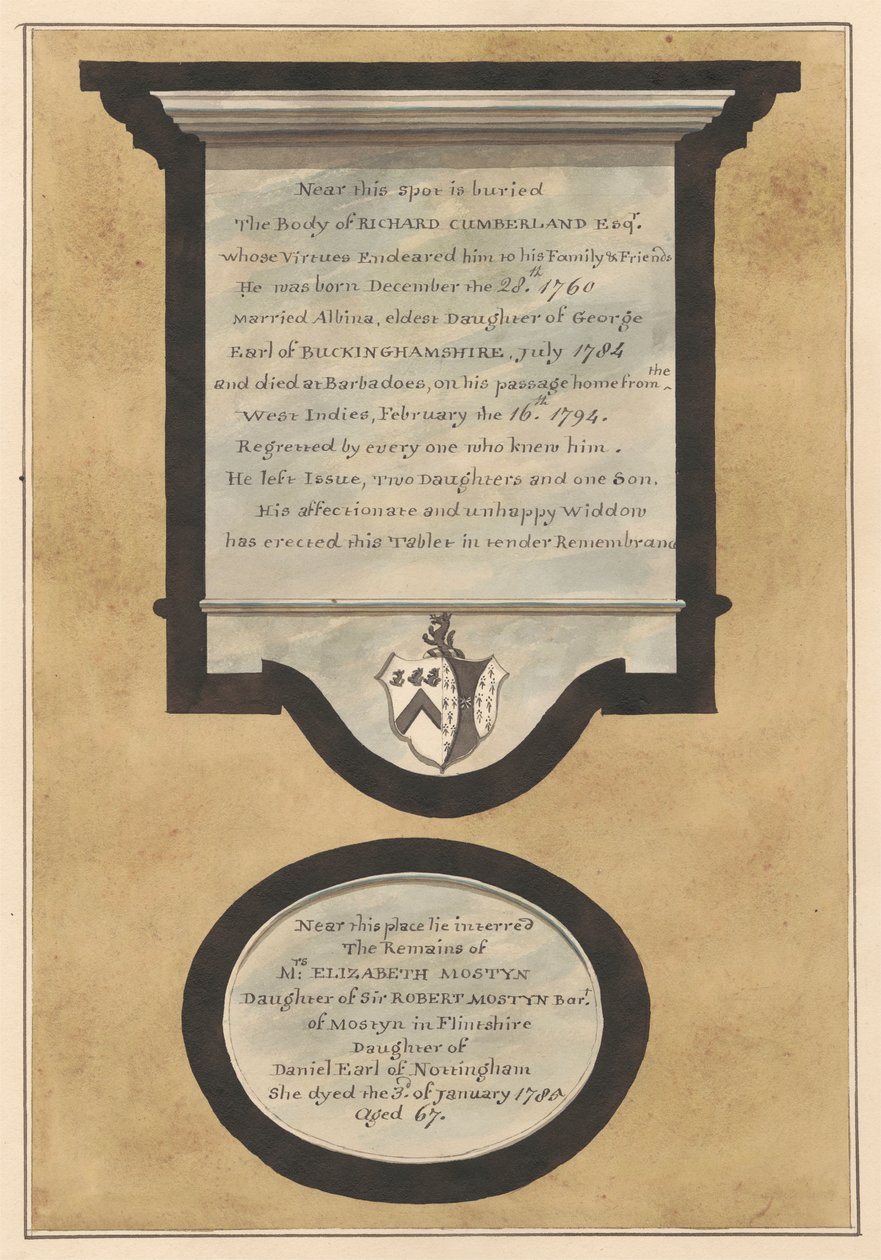 Near this spot is buried
The Body of RICHARD CUMBERLAND Esqr.
whose Virtues Endeared him to his Family & Friends
He was born December the 28.th 1760
Married Albina, eldest Daughter of George
Earl of BUCKINGHAMSHIRE, July 1784
and died at Barbadoes, on his passage home from the
West Indies, February the 16.th 1794.
Regretted by every one who knew him.
He left Issue, Two Daughters and one Son.
His affectionate and unhappy Widdow
has erected this Tablet in tender Remembranc
Near this place lie interred
The Remains of
Mrs: ELIZABETH MOSTYN
Daughter of Sir ROBERT MOSTYN Bart.
of Mostyn in Flintshire
Daughter of
Daniel Earl of Nottingham
She dyed the 3d. of January 1785
Aged 67.